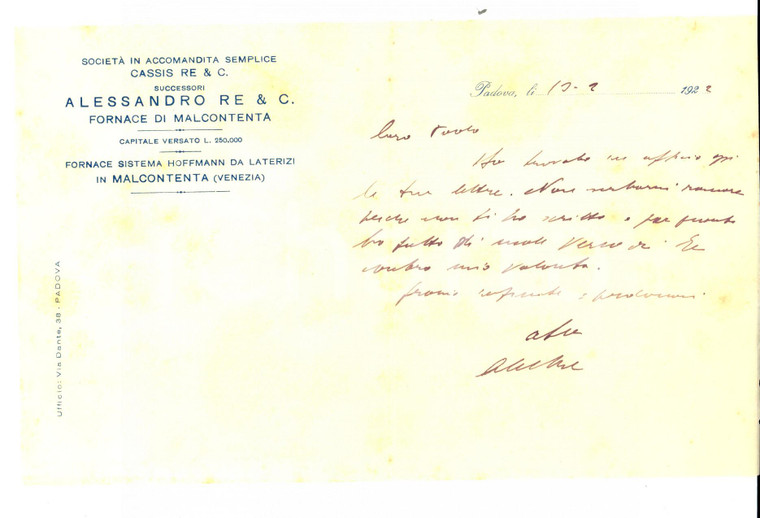 SOCIETÀ IN ACCOMANDITA SEMPLICE
CASSIS RE & C.
SUCCESSORI
ALESSANDRO RE & C.
FORNACE DI MALCONTENTA
CAPITALE VERSATO L. 250.000
FORNACE SISTEMA HOFFMANN DA LATERIZI
IN MALCONTENTA (VENEZIA)
Ufficio: Via Dante, 38 - PADOVA
Padova, li 1922
Caro
Ho trovato in ufficio
le tue lettere. Non serbarmi rancore
perchè non ti ho scritto e per quanto
ho fatto di male verso di Te
contro mia volontà.
e perdonami